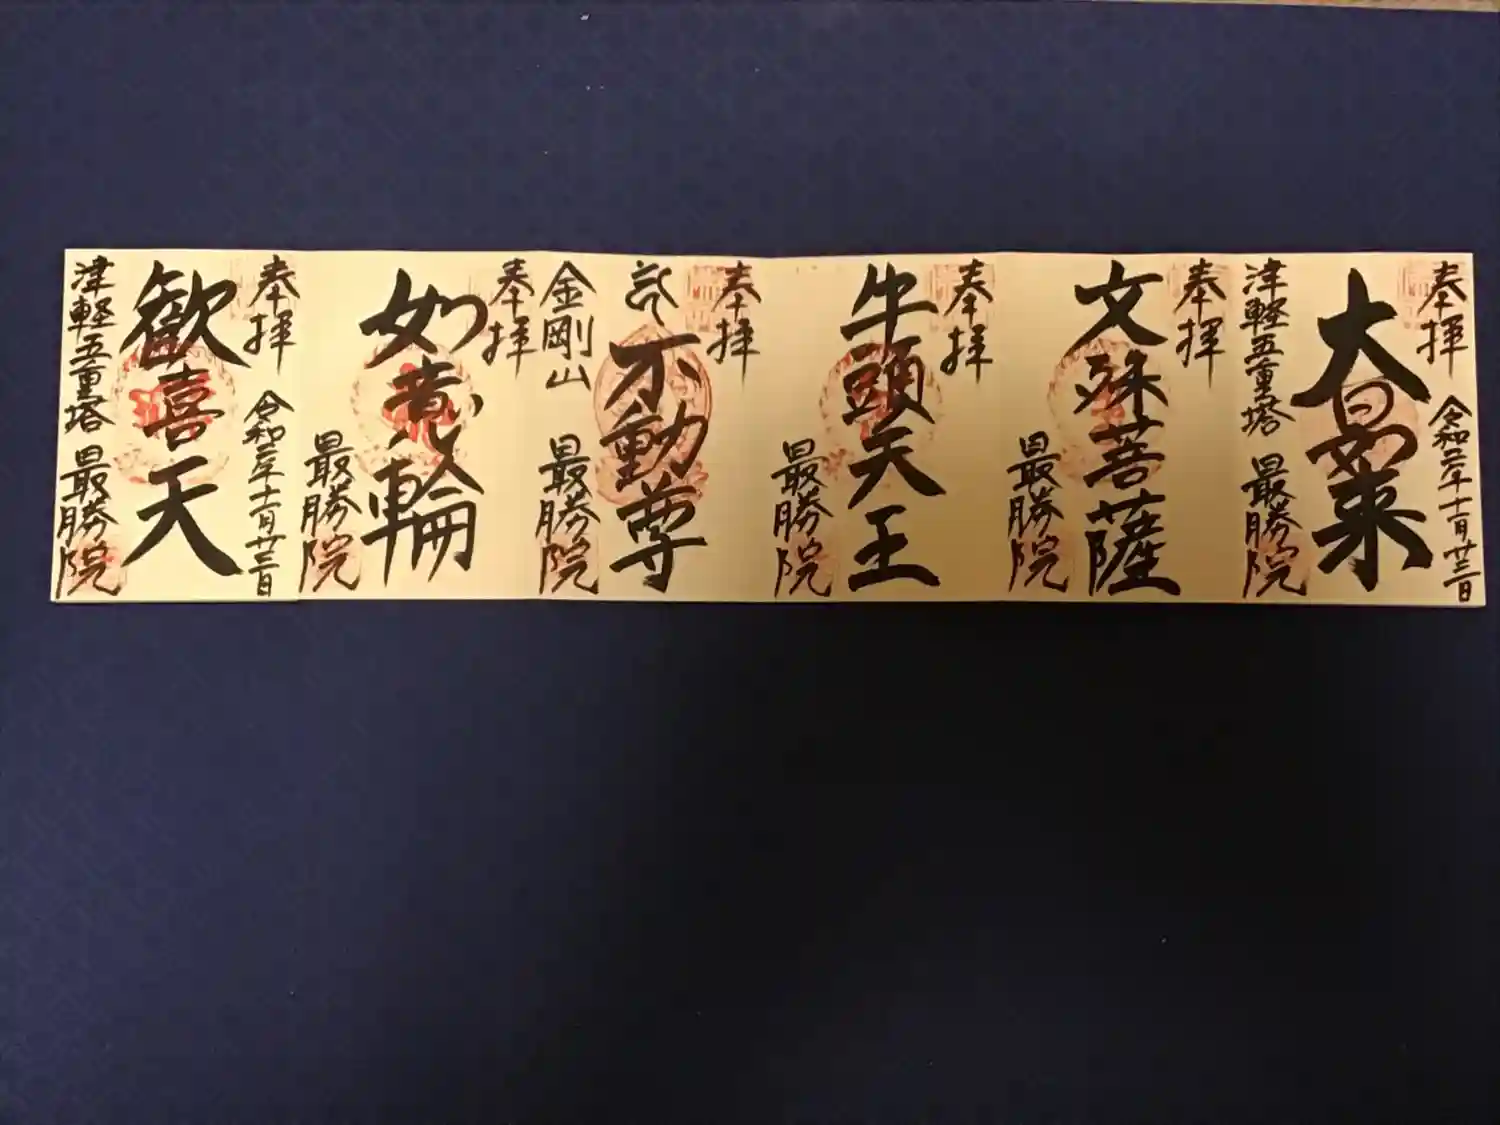 奉拝
令和二年十一月廿三日
大日如来
津軽五重塔 最勝院
奉拝
文殊菩薩
最勝院
奉拝
牛頭天王
最勝院
奉拝
不動尊
金剛山
最勝院
奉拝
如意輪
最勝院
奉拝
令和二年十一月廿三日
歓喜天
津軽五重塔 最勝院